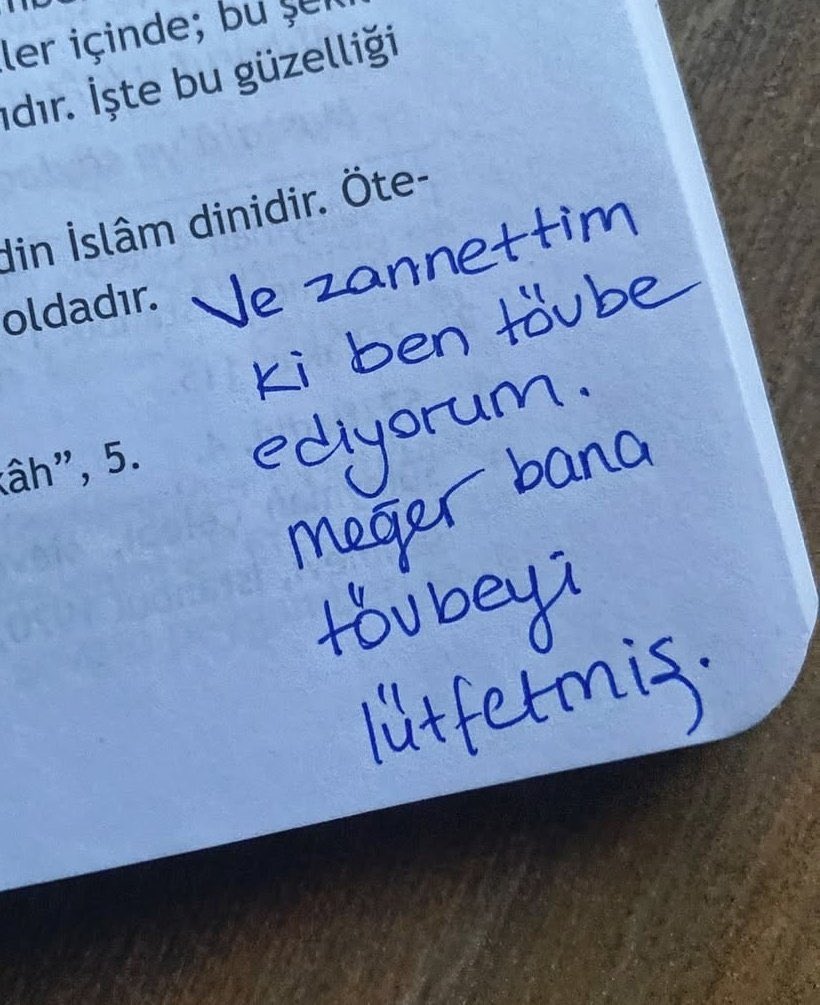 ler içinde; bu
ıdır. İşte bu güzelliği
din İslâm dinidir. Öte-
oldadır.
kâh”, 5.
Ve zannettim
ki ben tövbe
ediyorum.
meğer bana
tövbeyi
lütfetmiş.